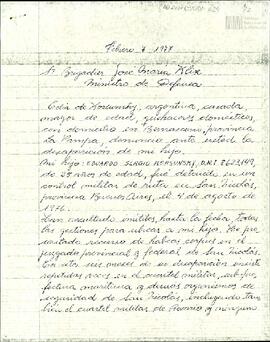 Febrero 7 1978
Sr. Brigadier José María Klix
Ministro de Defensa
Celia de Korsunsky, argentina, casada
mayor de edad, quehaceres domésticos,
con domicilio en Bernasconi, provincia
La Pampa, denuncia ante usted la
desaparición de mi hijo.
Mi hijo: EDUARDO SERGIO KORSUNSKY, D.N.I.
de 25 años de edad, fué detenido en un
control militar de ruta en San Nicolás,
provincia Buenos Aires, el 4 de agosto de
1976.
Han resultado inútiles, hasta la fecha, todas
las gestiones para ubicar a mi hijo. He pre
sentado recurso de habeas corpus en el
juzgado provincial y federal de San Nicolás.
En estos meses de su desaparición
repetidas veces en el cuartel militar, subpre
fectura marítima y demás organismos de
seguridad de San Nicolás, incluyendo tam
bién el cuartel militar de Rosario y en ningun